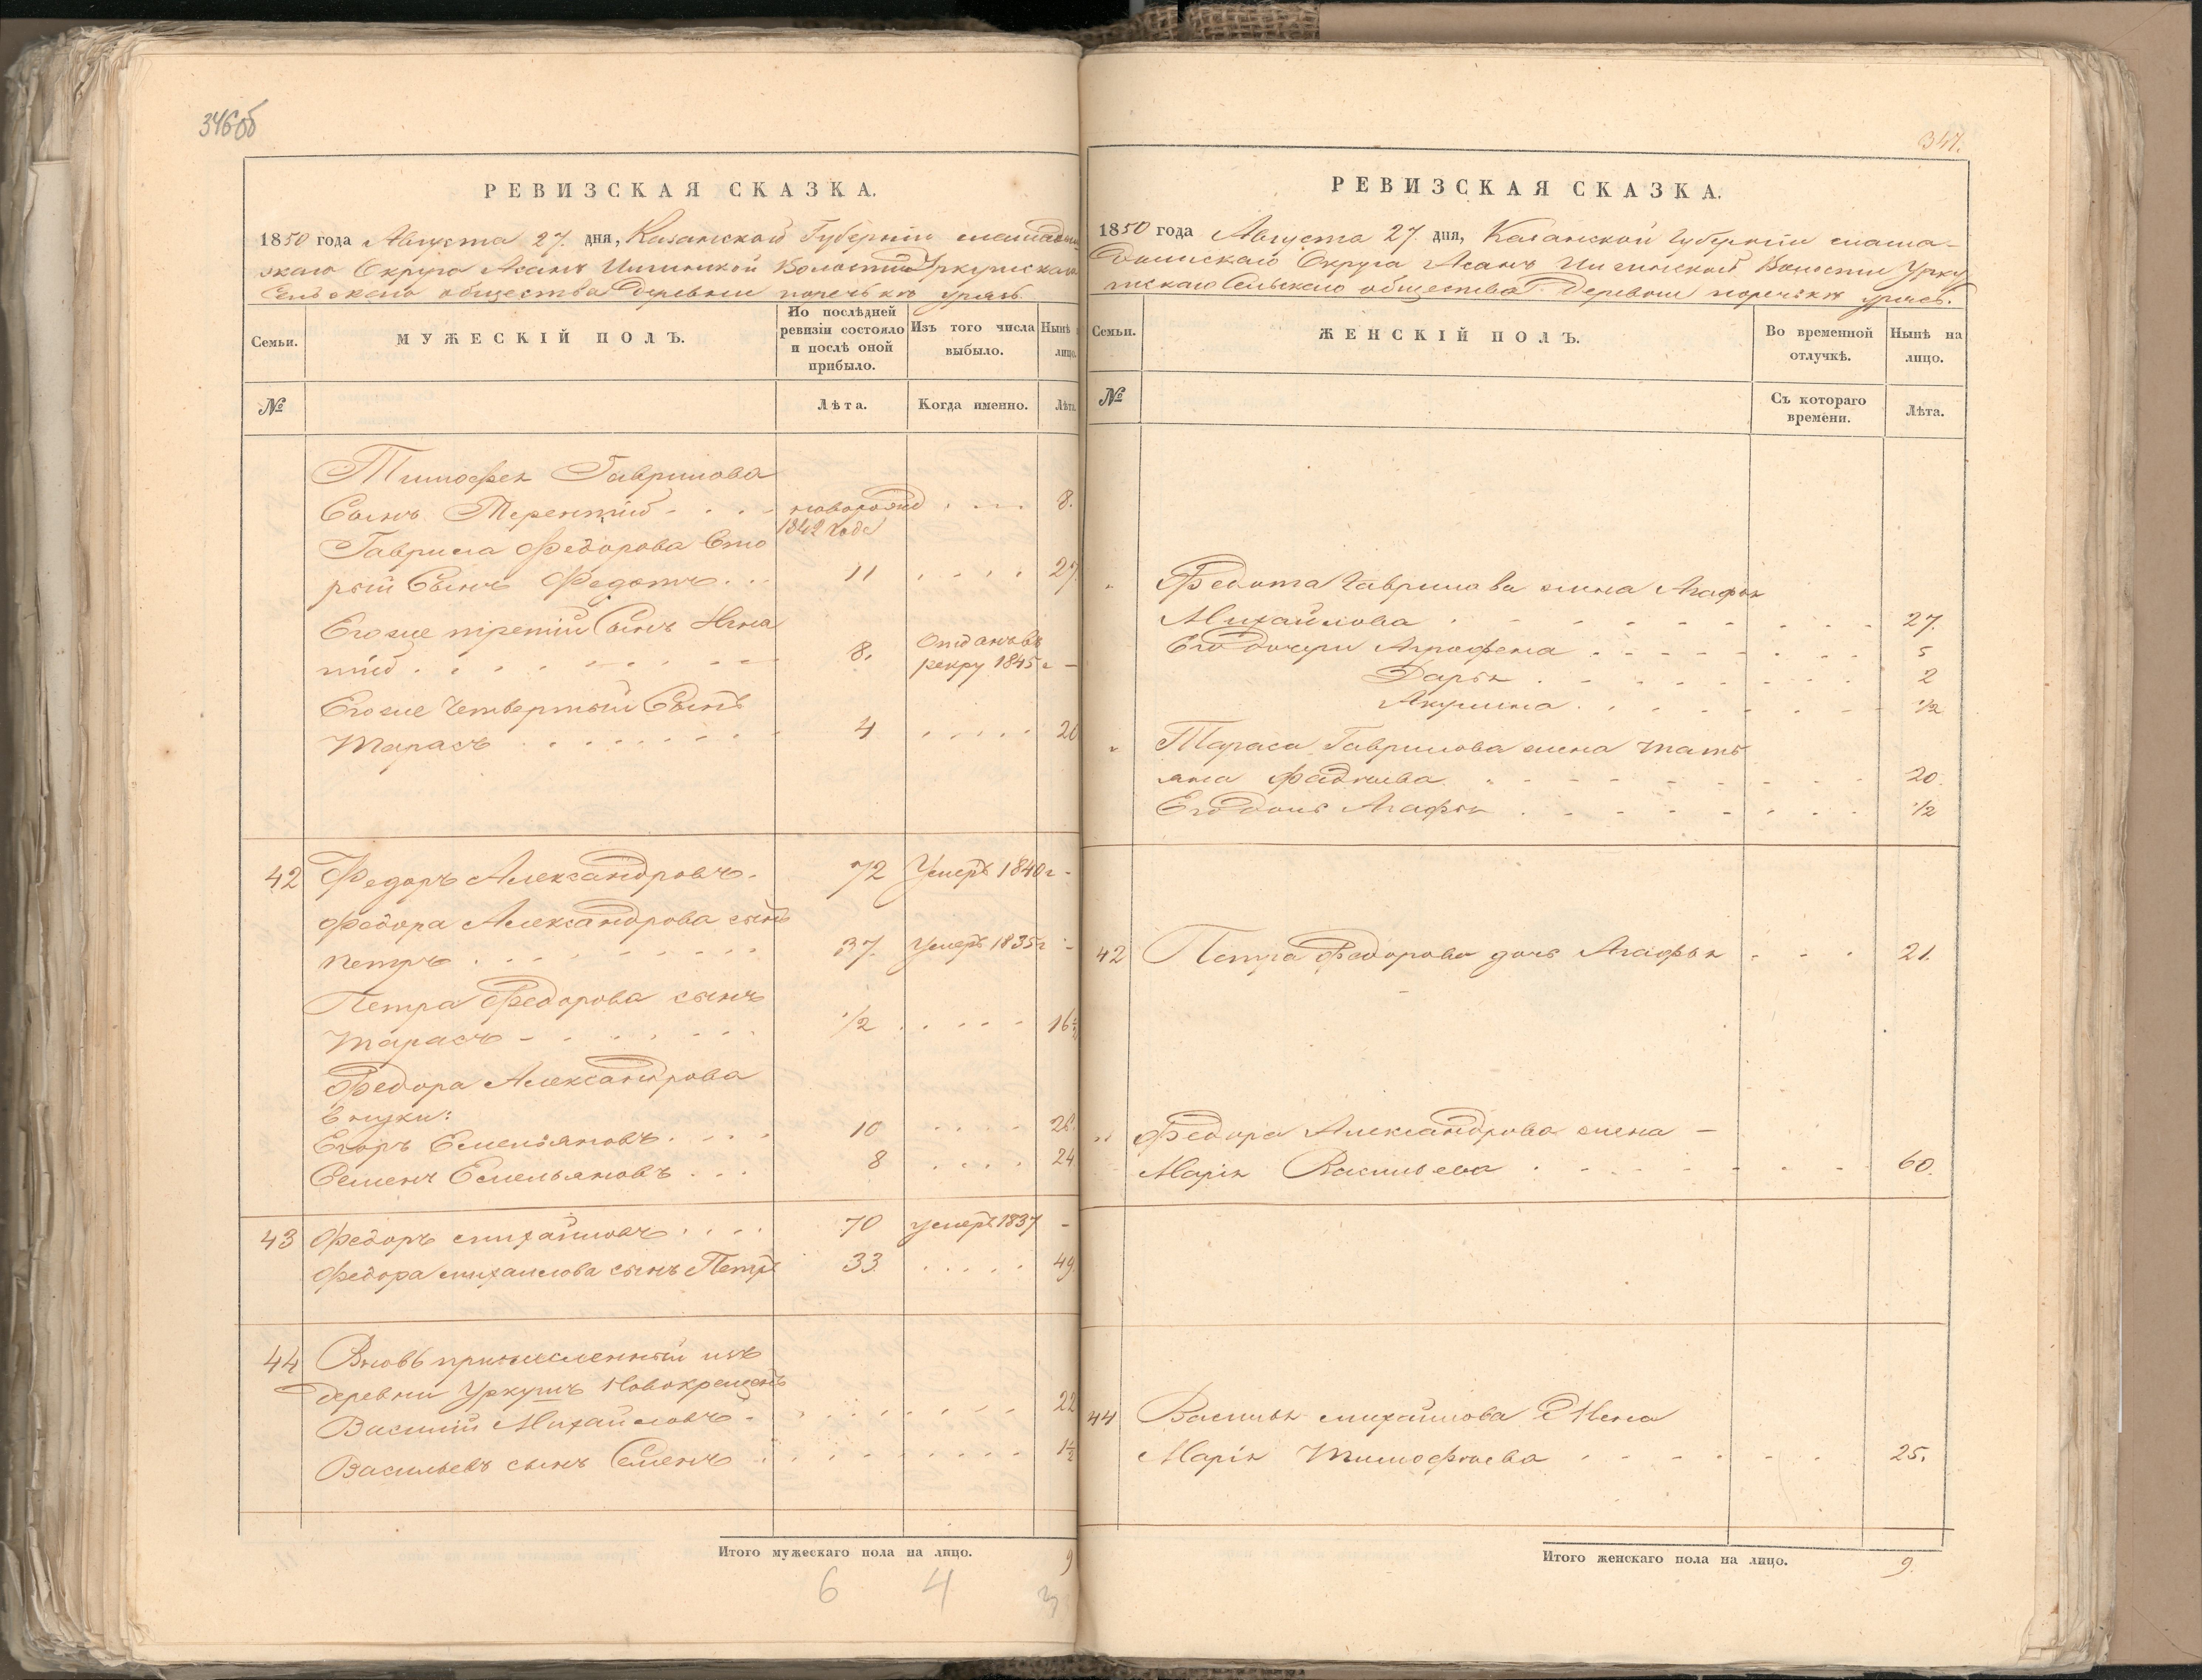 346об
РЕВИЗСКАЯ СКАЗКА.
1850 года Августа 27. дня, Казанской Губернiи мамадыш
скаго Округа Асанъ Волости Уркушскаго
Сельскаго общества Деревни поречькъ урясь.
Семьи.
МУЖЕСКIЙ ПОЛЪ.
По послѣдней ревизiи состояло и послѣ оной прибыло.
Изъ того числа выбыло.
Нынѣ лицо.
№
Лѣта.
Когда именно.
Лѣта
Тимофея Гаврилова
Сынъ Терентiй новорожд 8.
1842 года
Гаврила Федорова вто
рый Сынъ Федотъ 11 27.
Его же третiй Сынъ Игна
тiй 8. Отданъ въ рекру 1845 г -
Его же Четвертый Сынъ
Тарасъ 4 20
42 Федоръ Александровъ. 72 Умеръ 1840 г -
Федора Александрова сынъ
Петръ 37. Умеръ 1835 г -
Петра Федорова сынъ
Тарасъ 1/2 16 1/2
Федора Александрова
внуки:
Егоръ Емельяновъ 10 26.
Семенъ Емельяновъ 8 24
43 Федоръ михайловъ 70 умеръ 1837 -
Федора михаилова сынъ Петръ 33 49.
44 Вновь причисленный изъ
деревни Уркушъ Новокрещенъ
Василiй Михайловъ 22
Васильевъ сынъ Семенъ 1 1/2
Итого мужескаго пола на лицо. 9
6 4 3
347.
РЕВИЗСКАЯ СКАЗКА.
1850 года Августа 27. дня, Казанской Губернiи мама-
дышскаго Округа Асанъ Волости Урку
шскаго Сельскаго общества Деревни поречькъ урясь.
Семьи.
ЖЕНСКIЙ ПОЛЪ.
Во временной отлучкѣ.
Нынѣ на лицо.
№
Съ котораго времени.
Лѣта.
" Федота Гаврилова жена Агафья
Михайлова 27.
Его дочери Агрофена 5
Дарья 2
Акулина 1/2
" Тараса Гаврилова жена тать
яна Фадѣева 20.
Его дочь Агафья 1/2
42 Петра Федорова дочь Агафья 21.
" Федора Александрова жена -
Марiя Васильева 60.
44 Василья михайлова Жена
Марiя Тимофѣева 25.
Итого женскаго пола на лицо. 9.